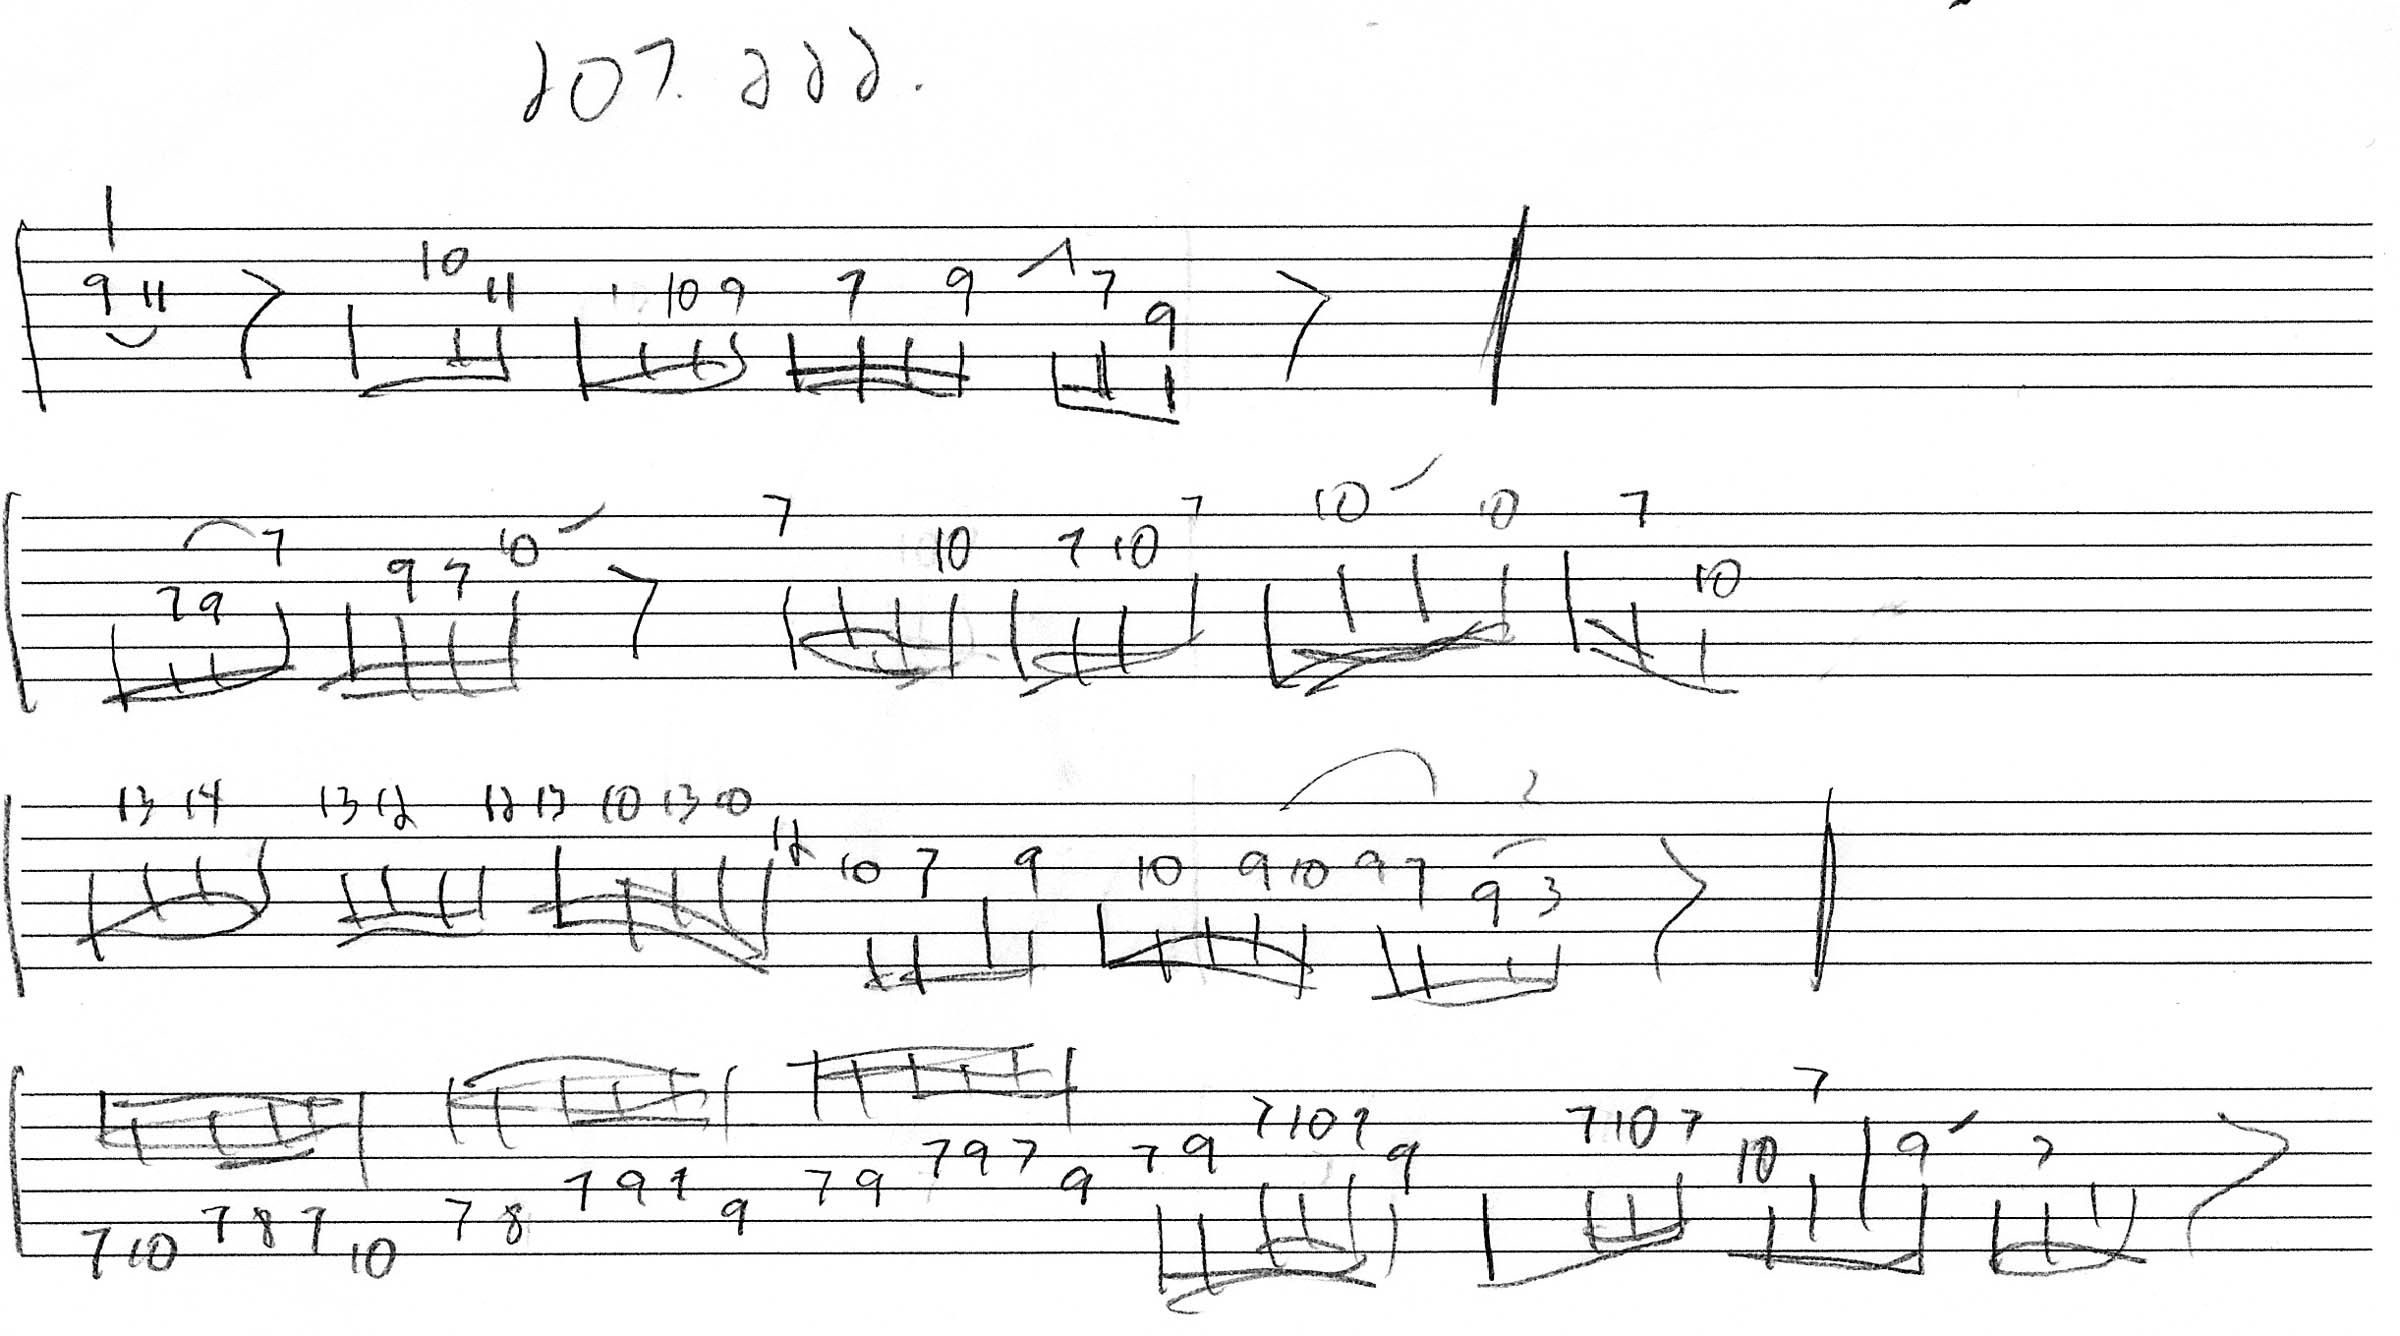 207. 222.
9 11 10 11 10 9 7 9 7 9
7 9 7 9 7 10 7 10 7 10 7 10 10 7 10
13 14 13 12 12 13 10 13 10 12 10 7 9 10 9 10 9 7 9 3
7 10 7 8 7 10 7 8 7 9 7 9 7 9 7 9 7 9 7 9 7 10 7 9 7 10 7 10 7 9 7